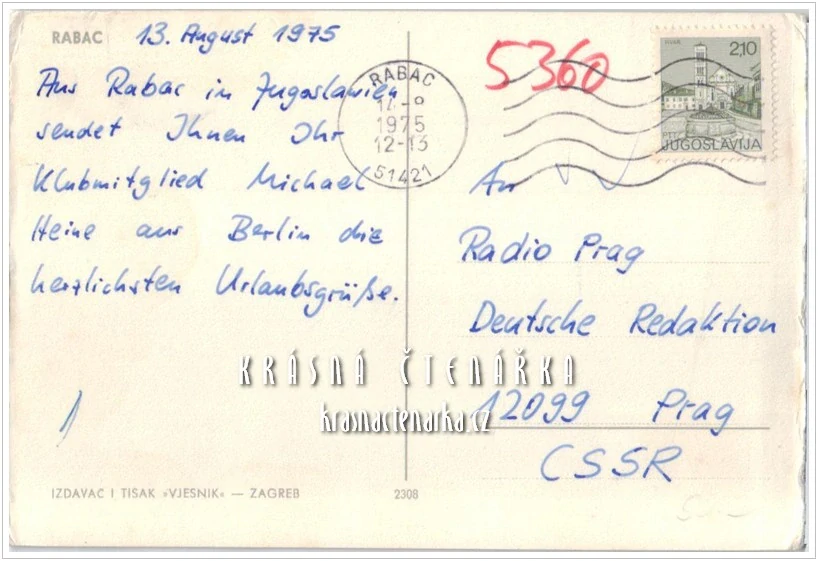 RABAC
13. August 1975
Aus Rabac in Jugoslawien
sendet Ihnen Ihr
Klubmitglied Michael
Heine aus Berlin die
herzlichsten Urlaubsgrüße.
1
IZDAVAC I TISAK »VJESNIK« — ZAGREB
2308
5360
RABAC
1975
12-13
51421
HVAR
2,10
PTT
JUGOSLAVIJA
An
Radio Prag
Deutsche Redaktion
12099 Prag
CSSR
KRÁSNÁ ČTENÁŘKA
krasnactenarka.cz